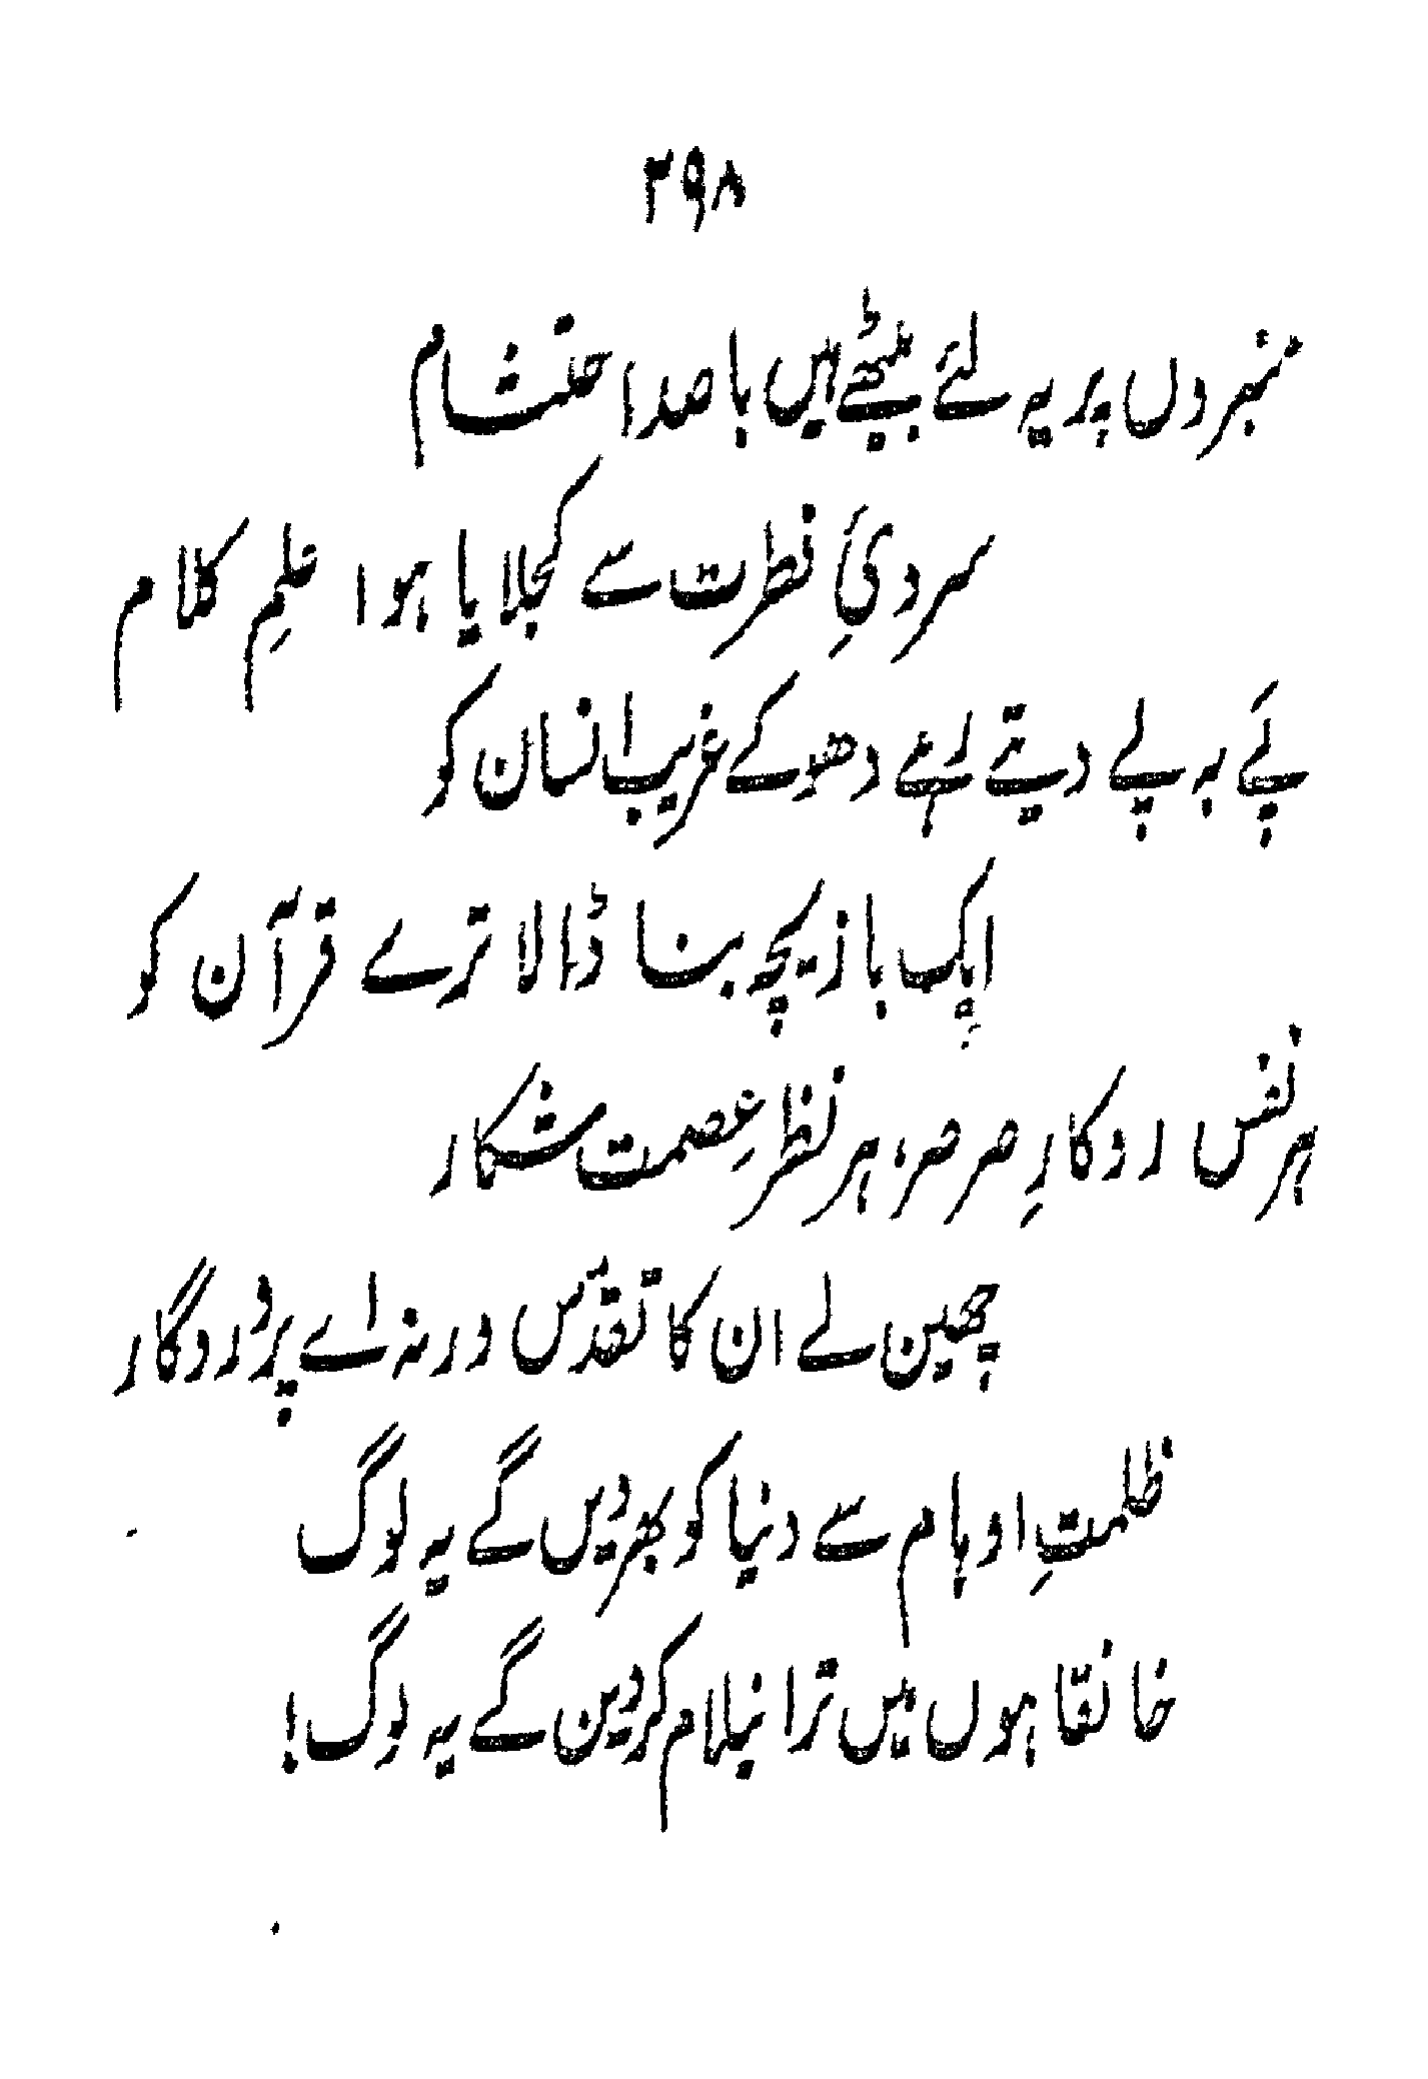 ۳۹۸
منبروں پر یہ لئے بیٹھے ہیں با صد احتشام
سردیٔ فطرت سے کجلایا ہوا علمِ کلام
پَے بہ پے دیتے رہے دھوکے غریب انسان کو
ایک بازیچہ بنا ڈالا ترے قرآن کو
ہر نفس رودکارِ صرصر، ہر نظر عصمت شکار
چھین لے ان کا تقدّس ورنہ اے پروردگار
ظلمتِ اوہام سے دنیا کو بھر دیں گے یہ لوگ
خانقاہوں میں ترا نیلام کر دیں گے یہ لوگ!